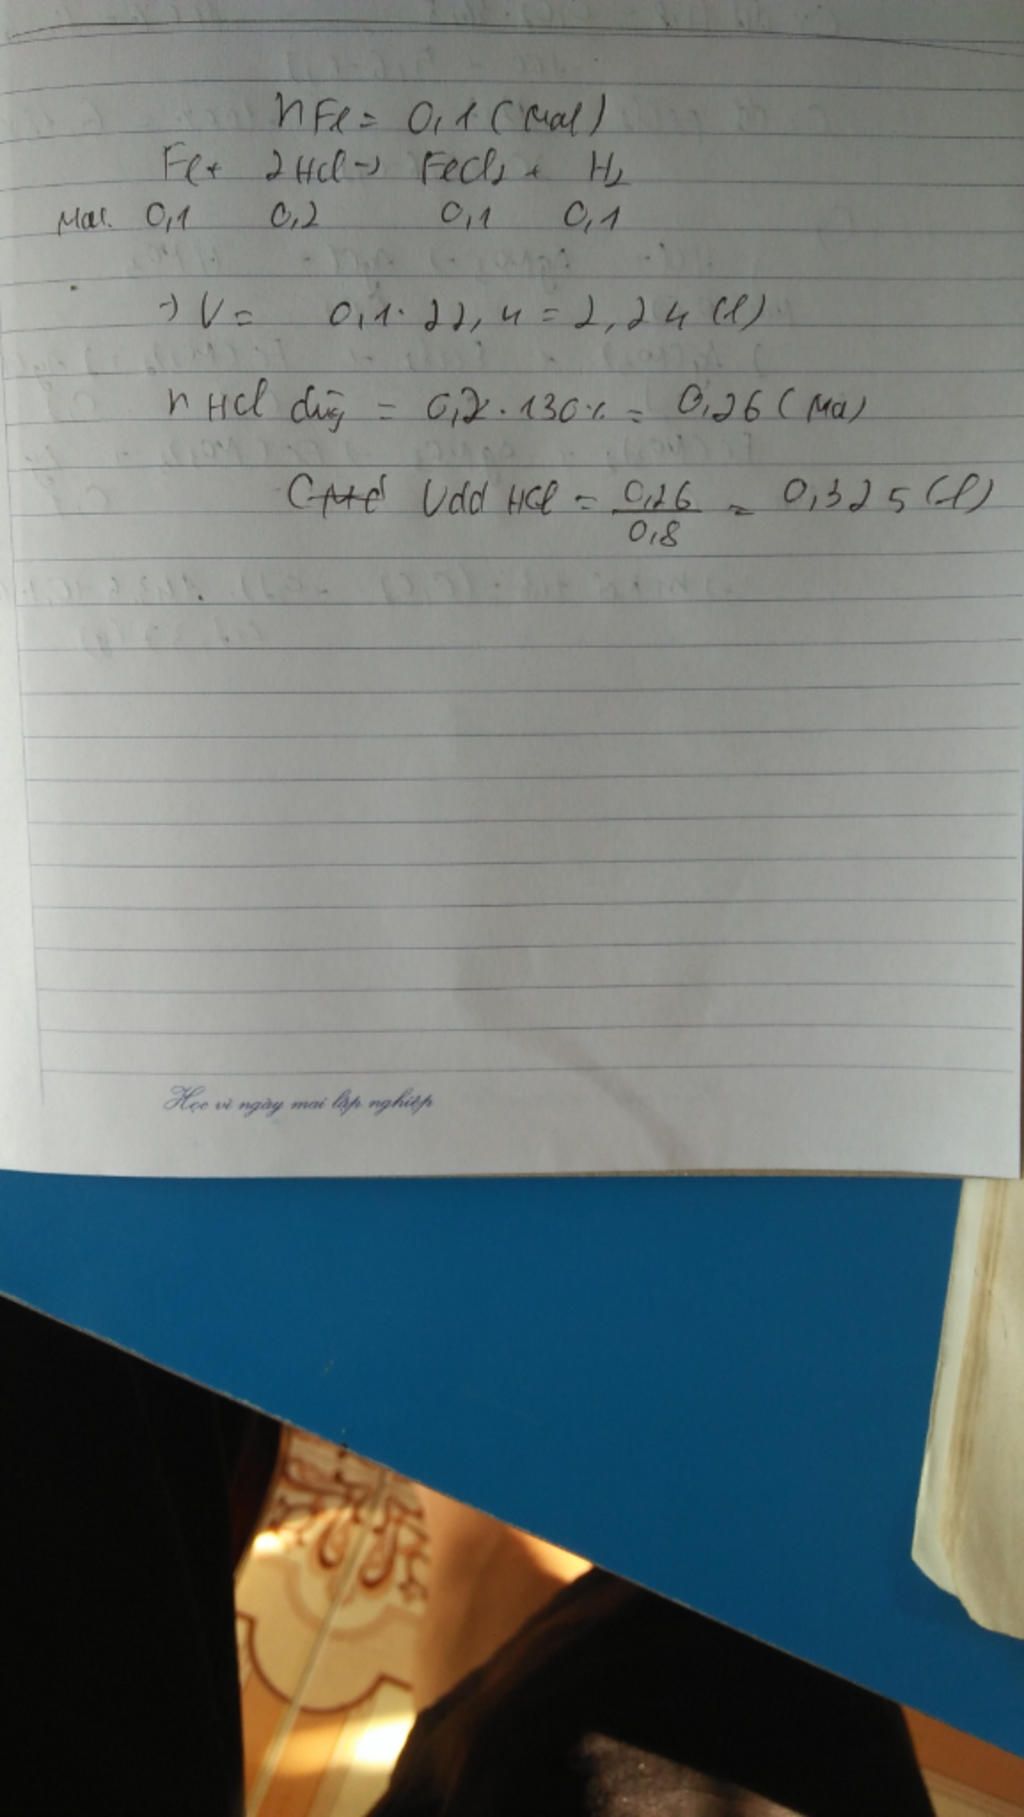 nFe = 0,1 (mol)
Fe + 2HCl → FeCl₂ + H₂
mol. 0,1 0,2 0,1 0,1
→ V = 0,1 . 22,4 = 2,24 (l)
n HCl dùng = 0,2 . 130% = 0,26 (mol)
Vdd HCl = 0,26/0,8 = 0,325 (l)
Học vì ngày mai lập nghiệp